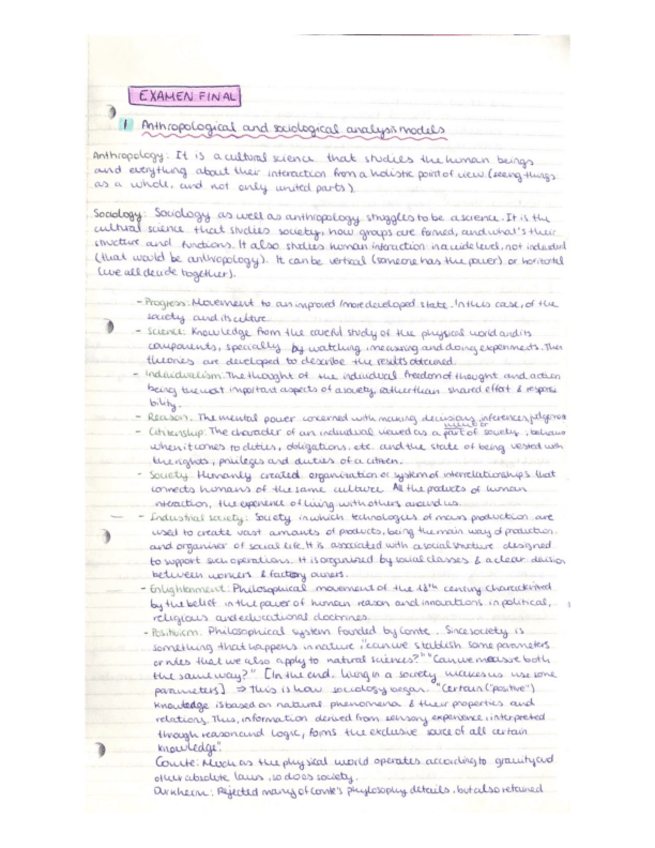 EXAMEN FINAL
1 Anthropological and sociological analysis models
Anthropology: It is a cultural science that studies the human beings
and everything about their interaction from a holistic point of view (seeing things
as a whole, and not only united parts)
Sociology: Sociology as well as anthropology struggles to be a science. It is the
cultural science that studies society, how groups are formed, and what's their
structure and functions. It also studies human interaction in a wide level, not individual
(that would be anthropology). It can be vertical (someone has the power) or horizontal
(we all decide together).
- Progress: Movement to an improved/more developed state. In this case, of the
society and its culture.
- Science: Knowledge from the careful study of the physical world and its
components, specially by watching, measuring and doing experiments. Then
theories are developed to describe the results obtained.
- Individualism: The thought of the individual freedom of thought and action
being the most important aspects of a society, rather than shared effort & respons
bility.
- Reason: The mental power concerned with making decisions, inferences,
- Citizenship: The character of an individual viewed as a part of society, behaviour
member
when it comes to duties, obligations, etc. and the state of being vested with
the rights, privileges and duties of a citizen.
- Society: Humanly created organization or system of interrelationships that
connects humans of the same culture. All the products of human
interaction, the experience of living with others around us.
- Industrial society: Society in which technologies of mass production are
used to create vast amounts of products, being the main way of production
and organiser of social life. It is associated with a social structure designed
to support such operations. It is organised by social classes & a clear division
between workers & factory owners.
- Enlightenment: Philosophical movement of the 18th century characterized
by the belief in the power of human reason and innovations in political,
religious and educational doctrines.
- Positivism: Philosophical system founded by Comte. Since society is
something that happens in nature, "can we stablish some parameters
or rules that we also apply to natural sciences?" "Can we measure both
the same way?" [In the end, living in a society makes us use some
parameters] ⇒ This is how sociology began. "Certain ("positive")
knowledge is based on natural phenomena & their properties and
relations. Thus, information derived from sensory experience, interpreted
through reason and logic, forms the exclusive source of all certain
knowledge".
Comte: Much as the physical world operates according to gravity and
other absolute laws, so does society.
Durkheim: Rejected many of Comte's phylosophy details, but also retained